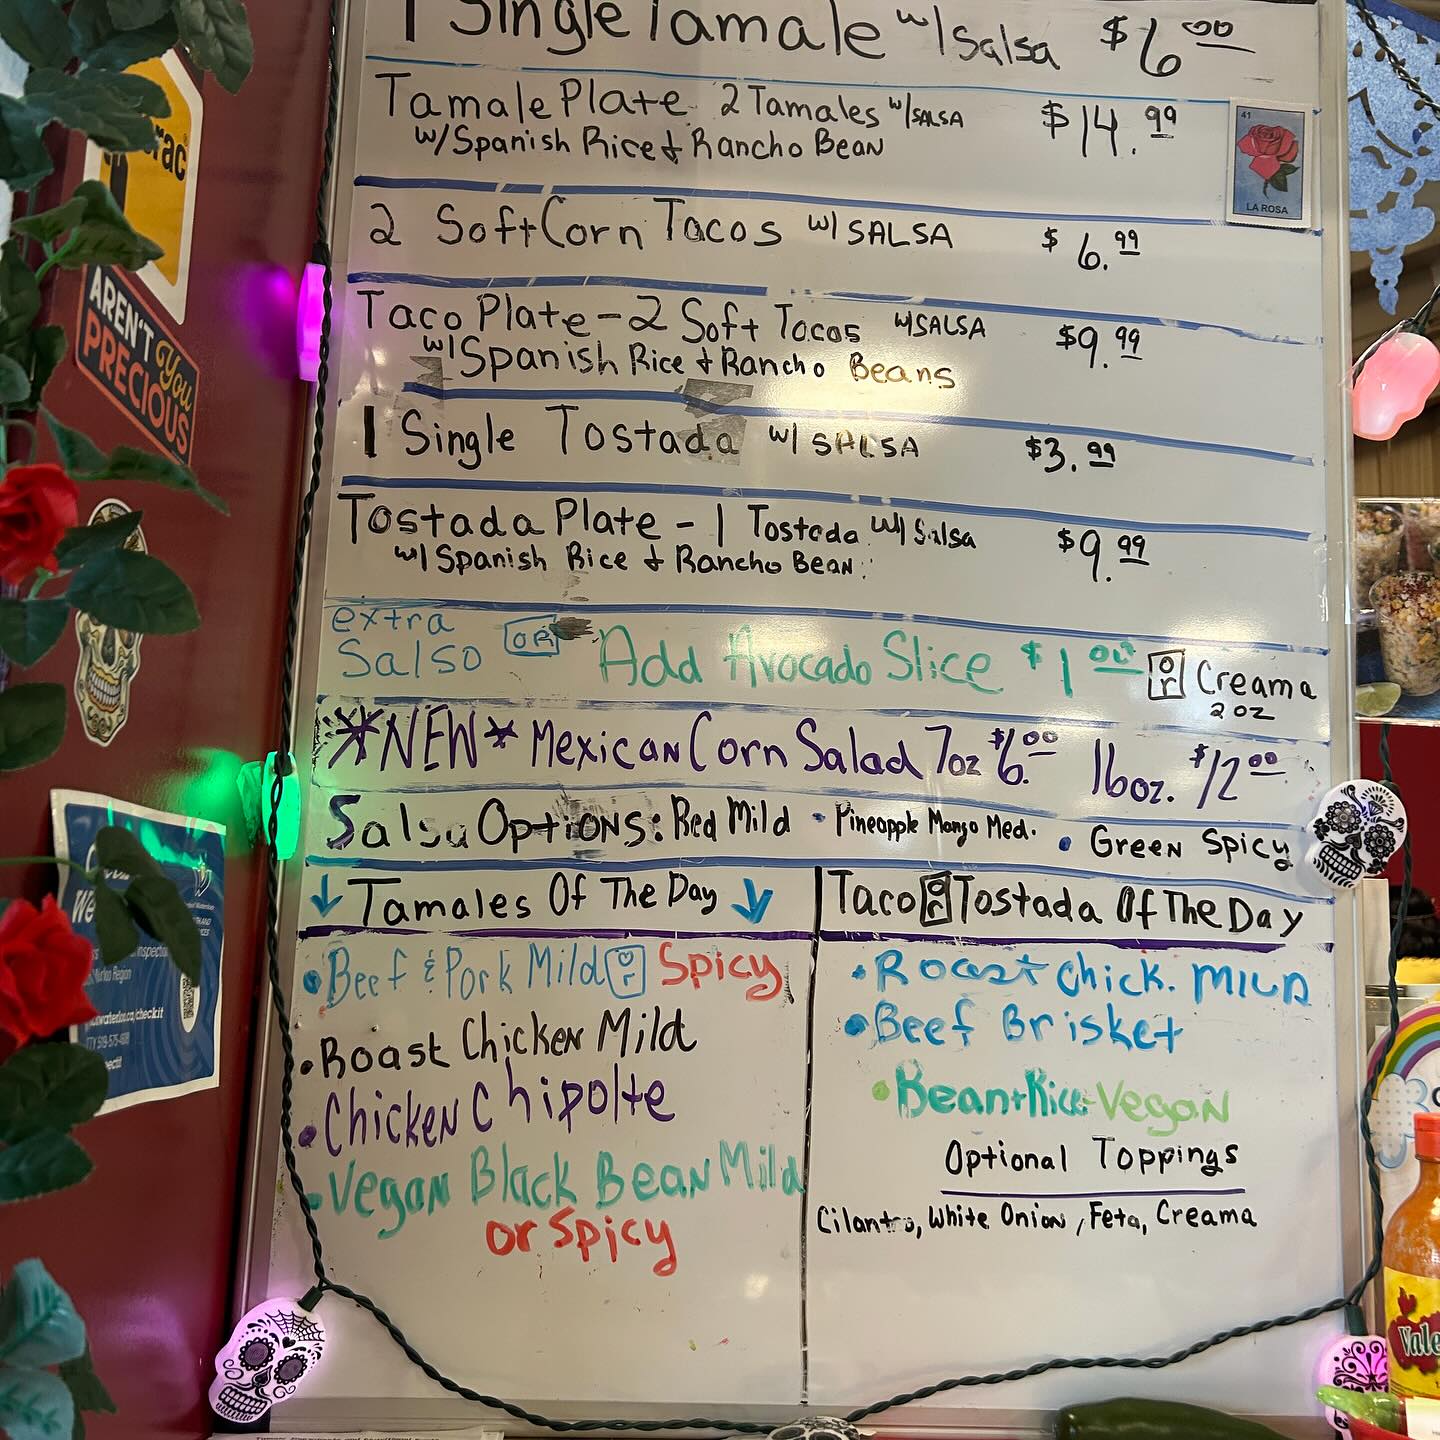 1 Single Tamale w/ Salsa $6.00
Tamale Plate 2 Tamales w/SALSA $14.99
w/Spanish Rice & Rancho Bean
41
LA ROSA
2 Soft Corn Tacos w/ SALSA $6.99
Taco Plate - 2 Soft Tacos w/SALSA $9.99
w/Spanish Rice & Rancho Beans
1 Single Tostada w/ SALSA $3.99
Tostada Plate - 1 Tostada w/ Salsa $9.99
w/ Spanish Rice & Rancho Bean
extra
Salsa OR Add Avocado Slice $1.00 or Creama
2 oz
*NEW* Mexican Corn Salad 7oz $6.00 16oz. $12.00
Salsa Options: Red Mild • Pineapple Mango Med. • Green Spicy
↓ Tamales Of The Day ↓
• Beef & Pork Mild or Spicy
• Roast Chicken Mild
• Chicken Chipolte
• Vegan Black Bean Mild
or Spicy
Taco or Tostada Of The Day
• Roast Chick. Mild
• Beef Brisket
• Bean+Rice-Vegan
Optional Toppings
Cilantro, White Onion, Feta, Creama
AREN'T You
PRECIOUS
rac
We
Region
checkit
TTY 519-575-4608
Vale